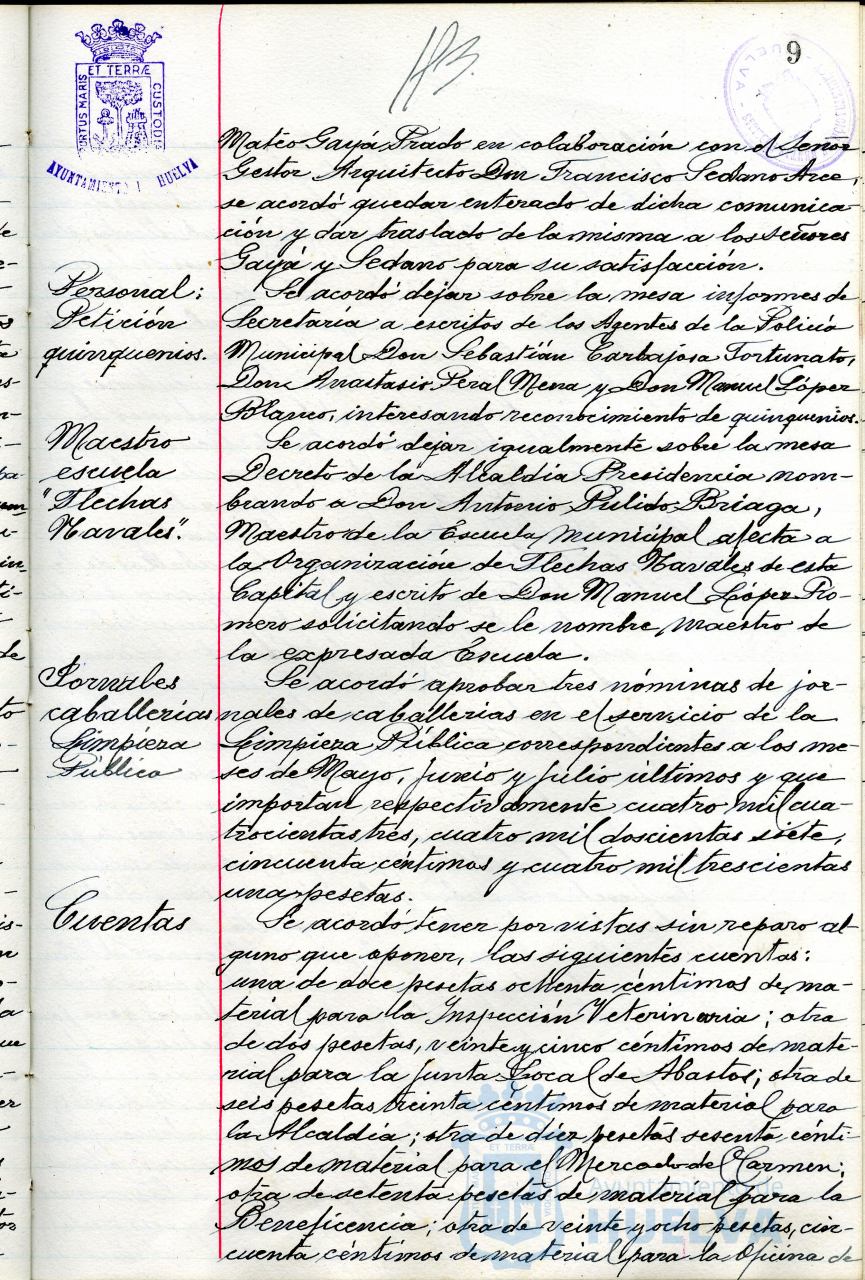 9
113.
ET TERRÆ
PORTUS MARIS
CUSTODIA
AYUNTAMIENTO HUELVA
HUELVA
Mateo Gayá Prado en colaboración con el Señor
Gestor Arquitecto Don Francisco Sedano Arce,
se acordó quedar enterado de dicha comunica-
ción y dar traslado de la misma a los señores
Gayá y Sedano para su satisfacción.
Personal:
Petición
quinquenios.
Se acordó dejar sobre la mesa informes de
Secretaría a escritos de los Agentes de la Policía
Municipal Don Sebastián Carbajosa Fortunato,
Don Anastasio Peral Mena y Don Manuel López
Blanco, interesando reconocimiento de quinquenios.
Maestro
escuela
"Flechas
Navales".
Se acordó dejar igualmente sobre la mesa
Decreto de la Alcaldía Presidencia nom-
brando a Don Antonio Pulido Briaga,
Maestro de la Escuela municipal afecta a
la Organización de Flechas Navales de esta
Capital y escrito de Don Manuel López Ro-
mero solicitando se le nombre, maestro de
la expresada Escuela.
Jornales
caballerías
Limpieza
Pública
Se acordó aprobar tres nóminas de jor-
nales de caballerias en el servicio de la
Limpieza Pública correspondientes a los me-
ses de Mayo, Junio y Julio últimos y que
importan respectivamente cuatro mil cua-
trocientas tres, cuatro mil doscientas siete,
cincuenta céntimos y cuatro mil trescientas
una pesetas.
Cuentas
Se acordó tener por vistas sin reparo al-
guno que oponer, las siguientes cuentas:
una de doce pesetas ochenta céntimos de ma-
terial para la Inspección Veterinaria; otra
de dos pesetas, veinte y cinco céntimos de mate-
rial para la Junta Local de Abastos; otra de
seis pesetas treinta céntimos de material para
la Alcaldía; otra de diez pesetas sesenta cénti-
mos de material para el Mercado del Carmen;
otra de setenta pesetas de material para la
Beneficencia; otra de veinte y ocho pesetas, cin-
cuenta céntimos de material para la Oficina de
Ayuntamiento de
HUELVA